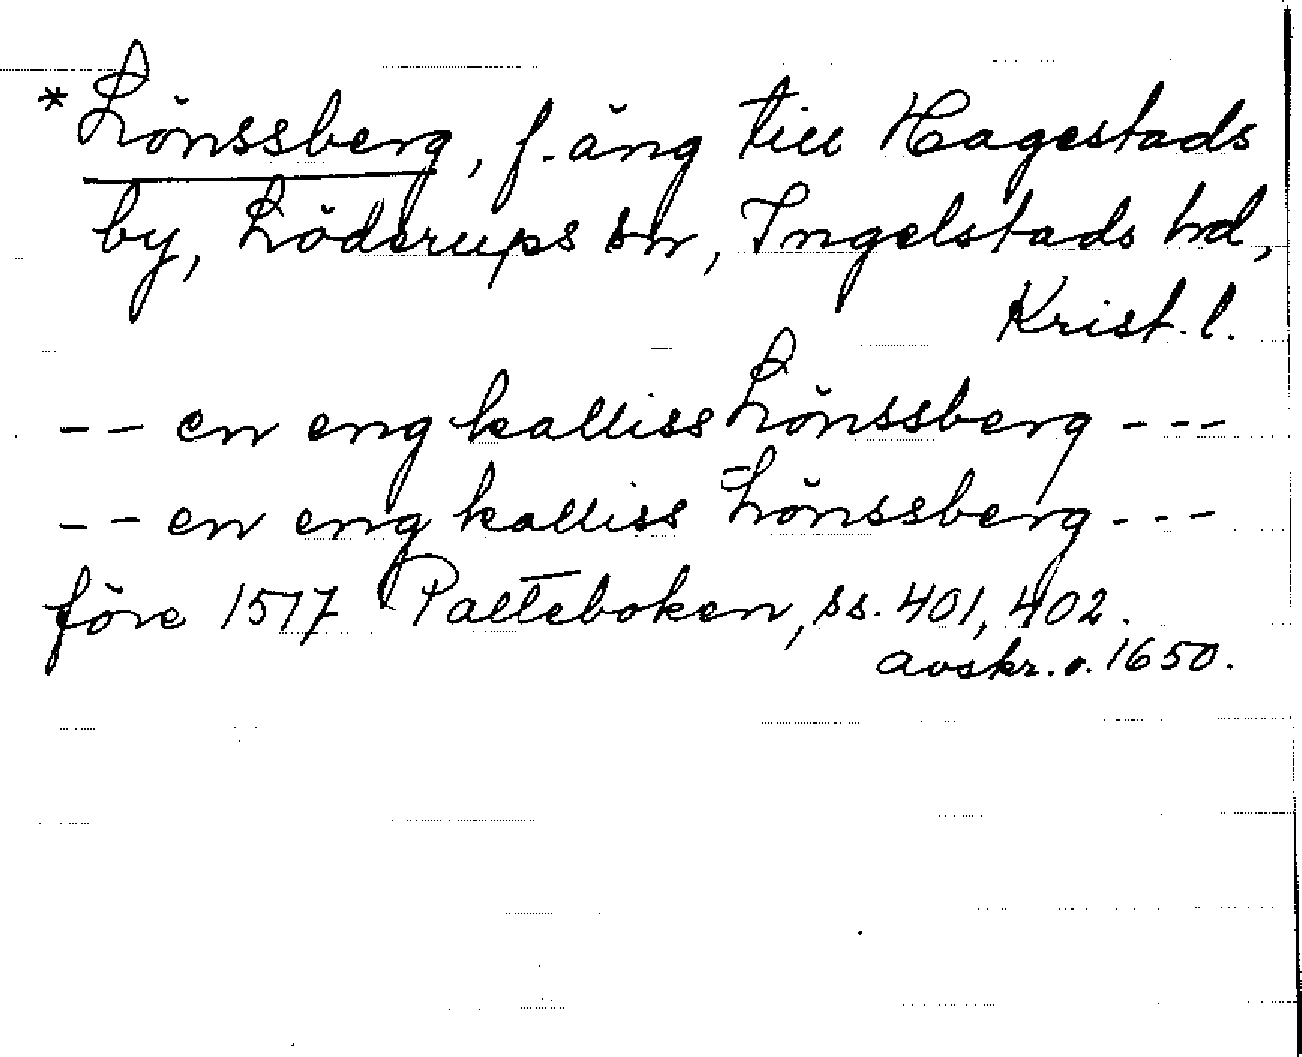 *Lönssberg, f. äng till Hagestads
by, Löderups sn, Ingelstads hd,
Krist. l.
-- en eng kalliss Lönssberg ---
-- en eng kalliss Lönssberg ---
före 1517 Palteboken, ss. 401, 402.
avskr. o. 1650.